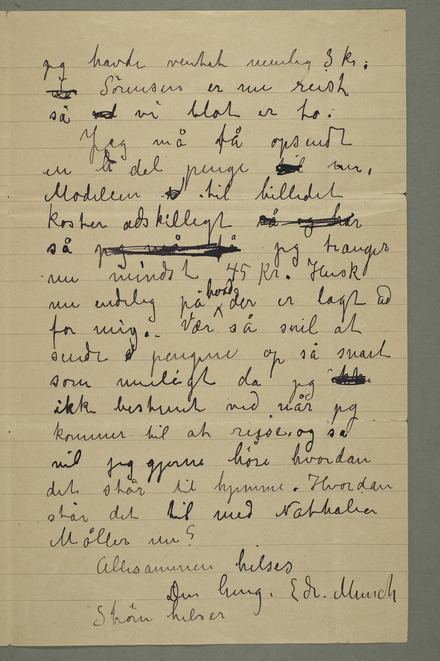 jeg havde ventet nemlig 3 kr.
Sörensen er nu reist
så vi blot er to.
Jeg må få opsendt
en del penge nu.
Modellen til billedet
koster adskilligt
så jeg trænger
nu mindst 45 kr. Husk
nu endelig på hvad der er lagt ud
for mig. Vær så snil at
sende pengene op så snart
som muligt da jeg
ikke bestemt ved når jeg
kommer til at rejse, og så
vil jeg gjerne höre hvordan
det står til hjemme. Hvordan
står det til med Nathhalie
Möller nu?
Allesammen hilses
Din heng. Edv. Munch
Ström hilser